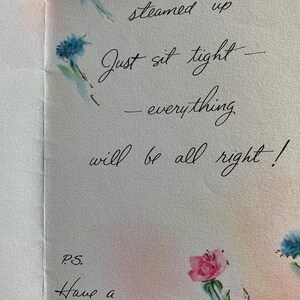 steamed up
Just sit tight —
— everything
will be all right!
P.S.
Have a